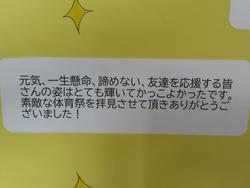 元気、一生懸命、諦めない、友達を応援する皆
さんの姿はとても輝いてかっこよかったです。
素敵な体育祭を拝見させて頂きありがとうご
ざいました！